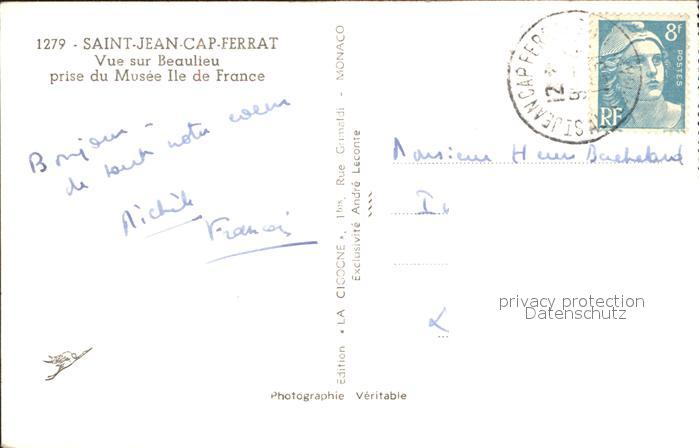 1279 - SAINT-JEAN-CAP-FERRAT
Vue sur Beaulieu
prise du Musée Ile de France
Bonjour -
de tout notre coeur
Michèle
Francis
Edition « LA CIGOGNE », 1bis, Rue Grimaldi - MONACO
Exclusivité André Leconte
Photographie Véritable
ST JEAN CAP FERRAT
12
8F
POSTES
RF
Monsieur Henri
privacy protection
Datenschutz